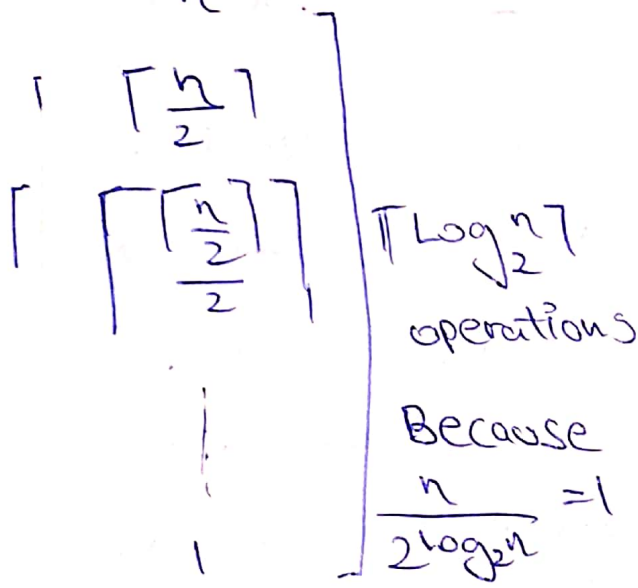 ⌈n/2⌉
⌈⌈n/2⌉/2⌉
⌈Log₂ n⌉
operations
Because
n/2^log₂n = 1
1